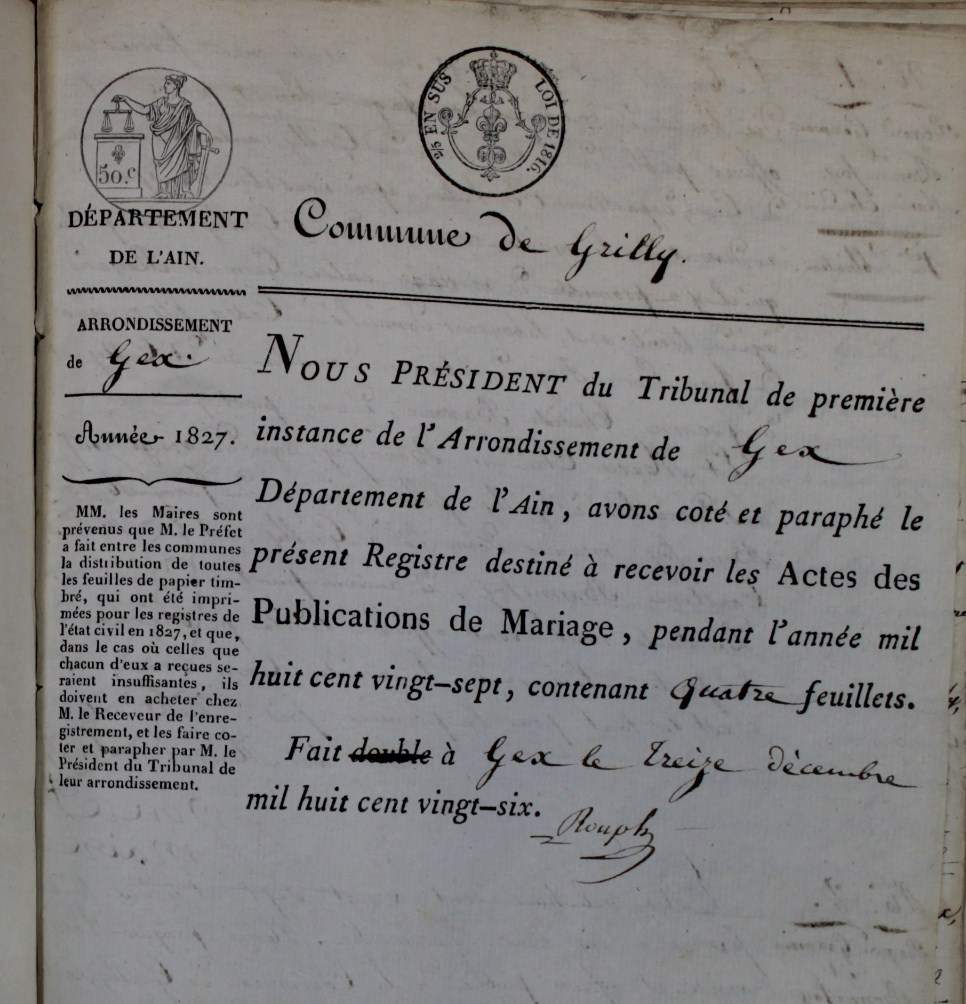 50.c
2/5 EN SUS LOI DE 1816.
DÉPARTEMENT
DE L'AIN.
ARRONDISSEMENT
de Gex.
Année 1827.
MM. les Maires sont
prévenus que M. le Préfet
a fait entre les communes
la distribution de toutes
les feuilles de papier tim-
bré, qui ont été impri-
mées pour les registres de
l'état civil en 1827, et que,
dans le cas où celles que
chacun d'eux a reçues se-
raient insuffisantes, ils
doivent en acheter chez
M. le Receveur de l'enre-
gistrement, et les faire co-
ter et parapher par M. le
Président du Tribunal de
leur arrondissement.
Commune de Grilly.
NOUS PRÉSIDENT du Tribunal de première
instance de l'Arrondissement de Gex
Département de l'Ain, avons coté et paraphé le
présent Registre destiné à recevoir les Actes des
Publications de Mariage, pendant l'année mil
huit cent vingt-sept, contenant quatre feuillets.
Fait double à Gex le treize décembre
mil huit cent vingt-six.
Rouph